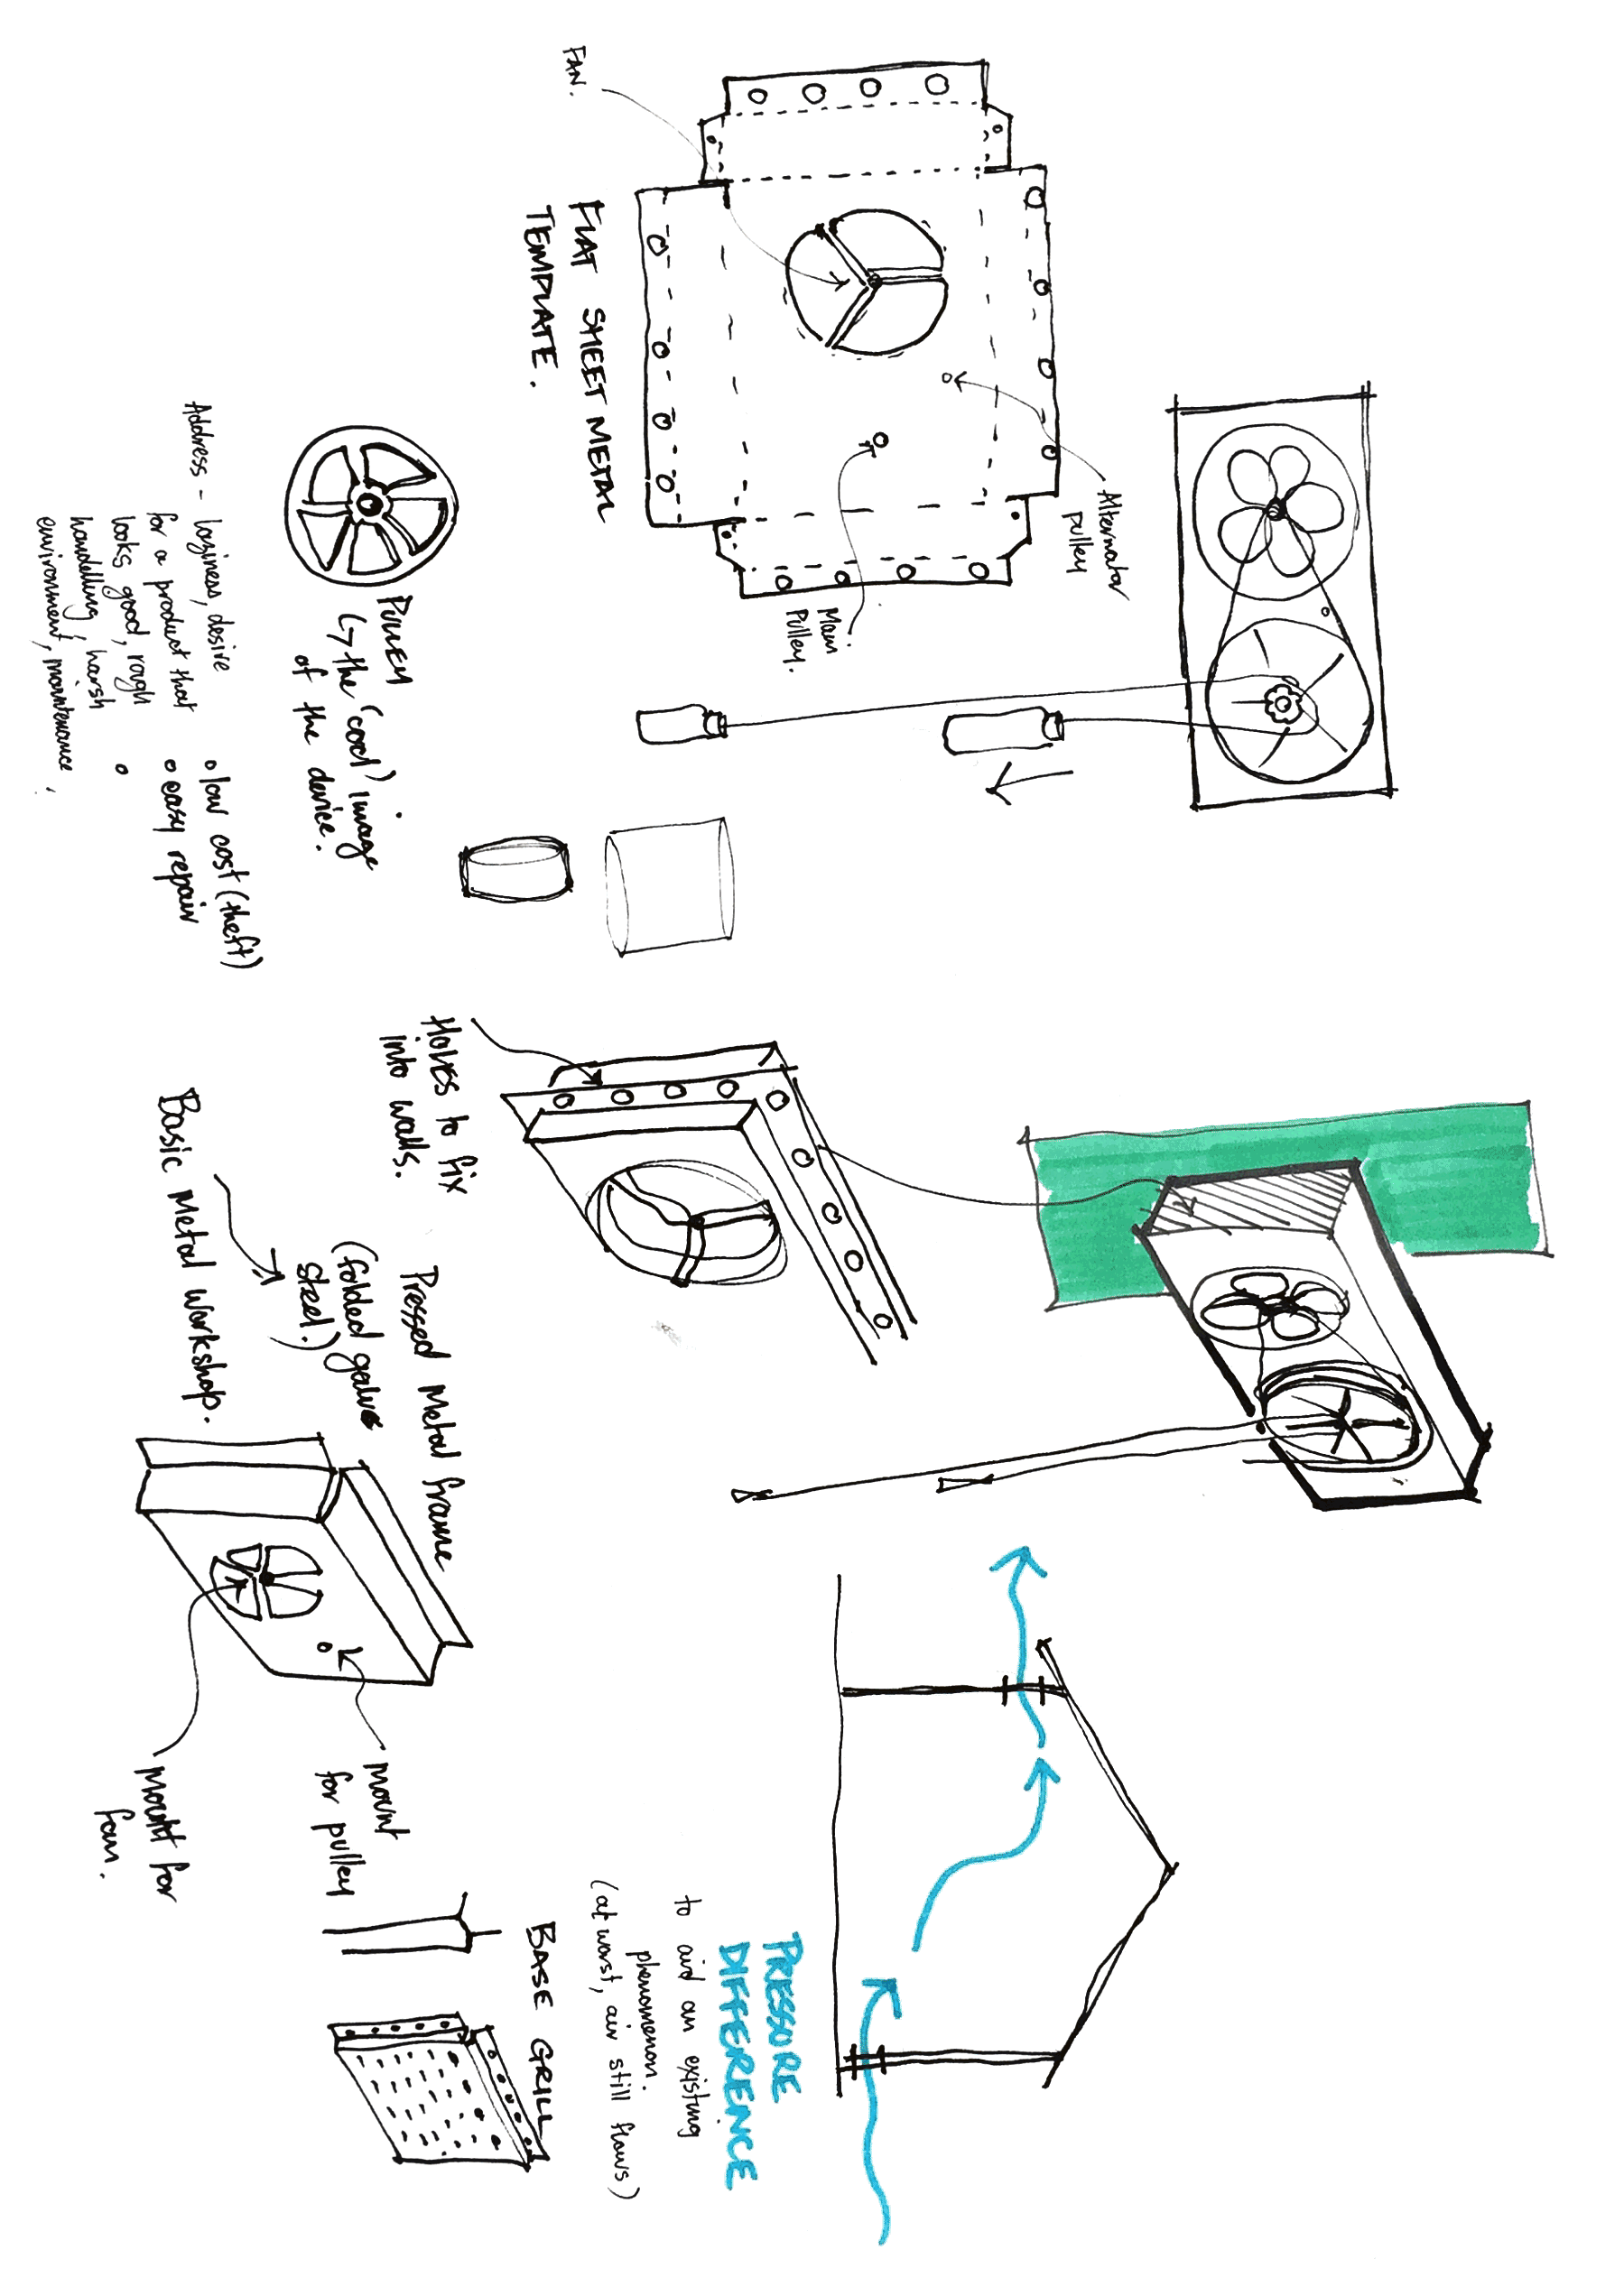 FAN.
FLAT SHEET METAL
TEMPLATE.
Alternator
pulley
Main
Pulley.
PULLEY
↳ the 'cool' image
of the device.
Address - laziness, desire
for a product that
looks good, rough
handelling, harsh
environment, maintenance.
• low cost (theft)
• easy repair
•
Holes to fix
into walls.
Pressed Metal frame
(folded galv
steel.)
Basic Metal workshop.
mount
for pulley
Mount for
fan.
PRESSURE
DIFFERENCE
to aid an existing
phenomenon.
(at worst, air still flows)
BASE GRILL